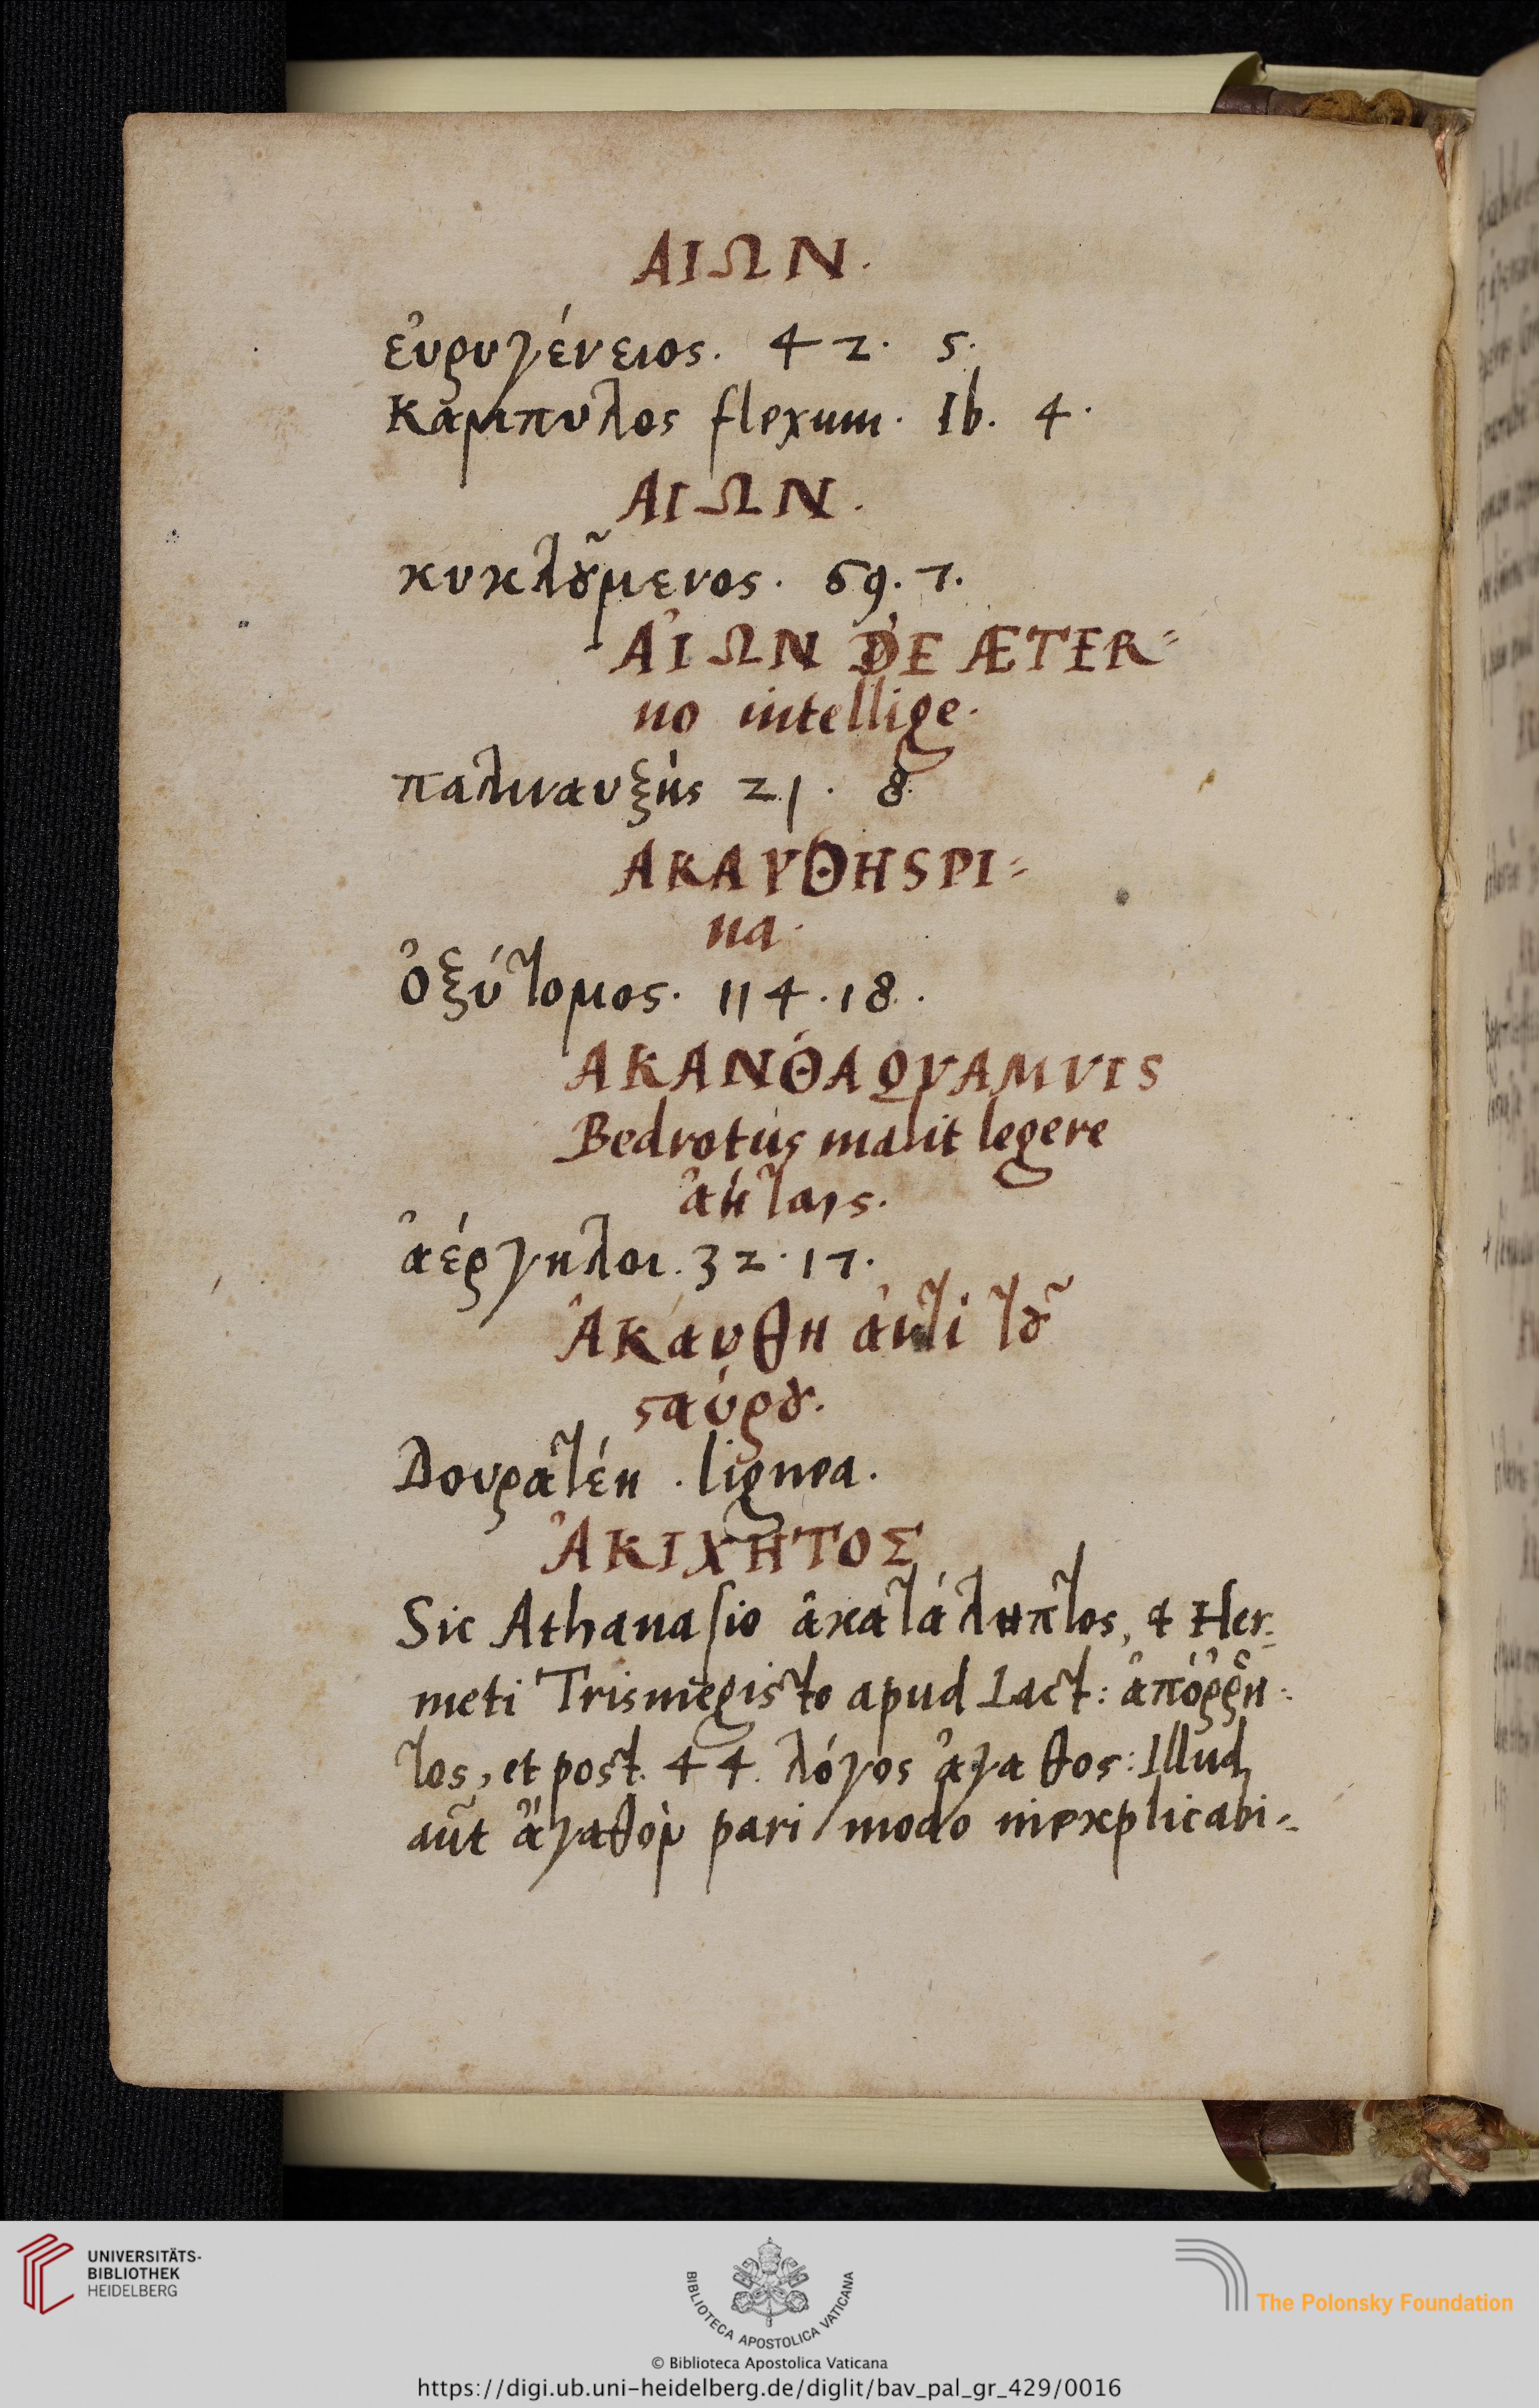 ΑΙΩΝ.
εὐρυγένειος. 42. 5.
Καμπυλος flexum. Ib. 4.
ΑΙΩΝ.
κυκλȣ͂μενος. 69. 7.
ἈΙΩΝ DE ÆTER=
no intellige.
παλιναυξὴς 21. 8.
ΑΚΑΥΘΗ SPI=
na.
ὀξύτομος. 114. 18.
ΑΚΑΝΘΑ QVAMVIS
Bedrotus malit legere
ἀήταις.
ἀέργηλοι. 32. 17.
Ἀκάυθη ἀντὶ τȣ͂
ϛαύρȣ.
Δουρατέη. lignea.
ἈΚΙΧΗΤΟΣ
Sic Athanasio ἀκατάληπτος, & Her=
meti Trismegisto apud Lact: ἀπόῤῥη=
τος, et post. 44. λόγος ἀγαθος: Illud
aũt ἄγαθὸν pari modo inexplicabi=
UNIVERSITÄTS-
BIBLIOTHEK
HEIDELBERG
BIBLIOTECA APOSTOLICA VATICANA
The Polonsky Foundation
© Biblioteca Apostolica Vaticana
https://digi.ub.uni-heidelberg.de/diglit/bav_pal_gr_429/0016